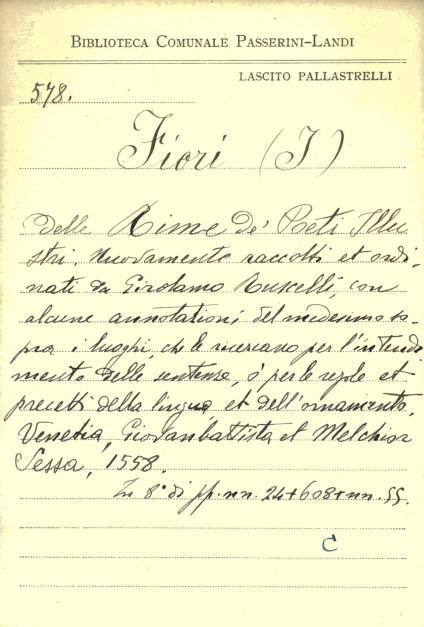 BIBLIOTECA COMUNALE PASSERINI-LANDI
LASCITO PALLASTRELLI
578.
Fiori (I)
delle Rime de' Poeti Illu
stri. Nuovamente raccolti et ordi,
nati da Girolamo Ruscelli, con
alcune annotationi del medesimo so,
pra i luoghi, che le ricercano per l'intendi
mento delle sentenze, ò per le regole et
precetti della lingua, et dell'ornamento.
Venetia, Giovanbattista et Melchior
Sessa, 1558.
In 8° di pp. nn. 24+608+nn. 55.
C